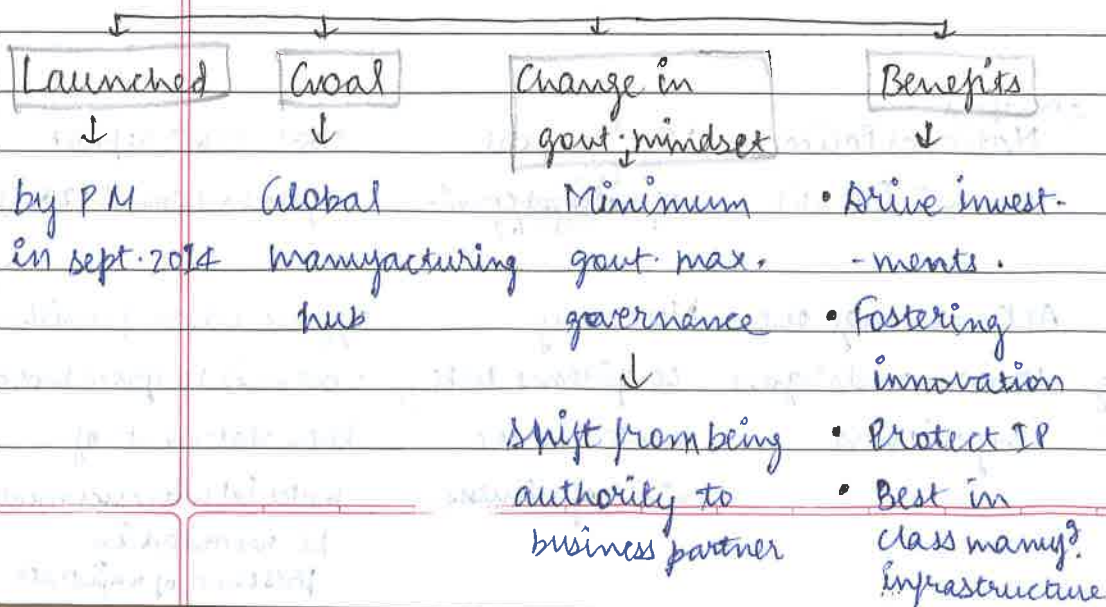 Launched
by PM
in sept. 2014
Goal
Global
manufacturing
hub
Change in
govt. mindset
Minimum
govt. max.
governance
shift from being
authority to
business partner
Benefits
• Drive invest-
-ments.
• Fostering
innovation
• Protect IP
• Best in
class manufg.
infrastructure